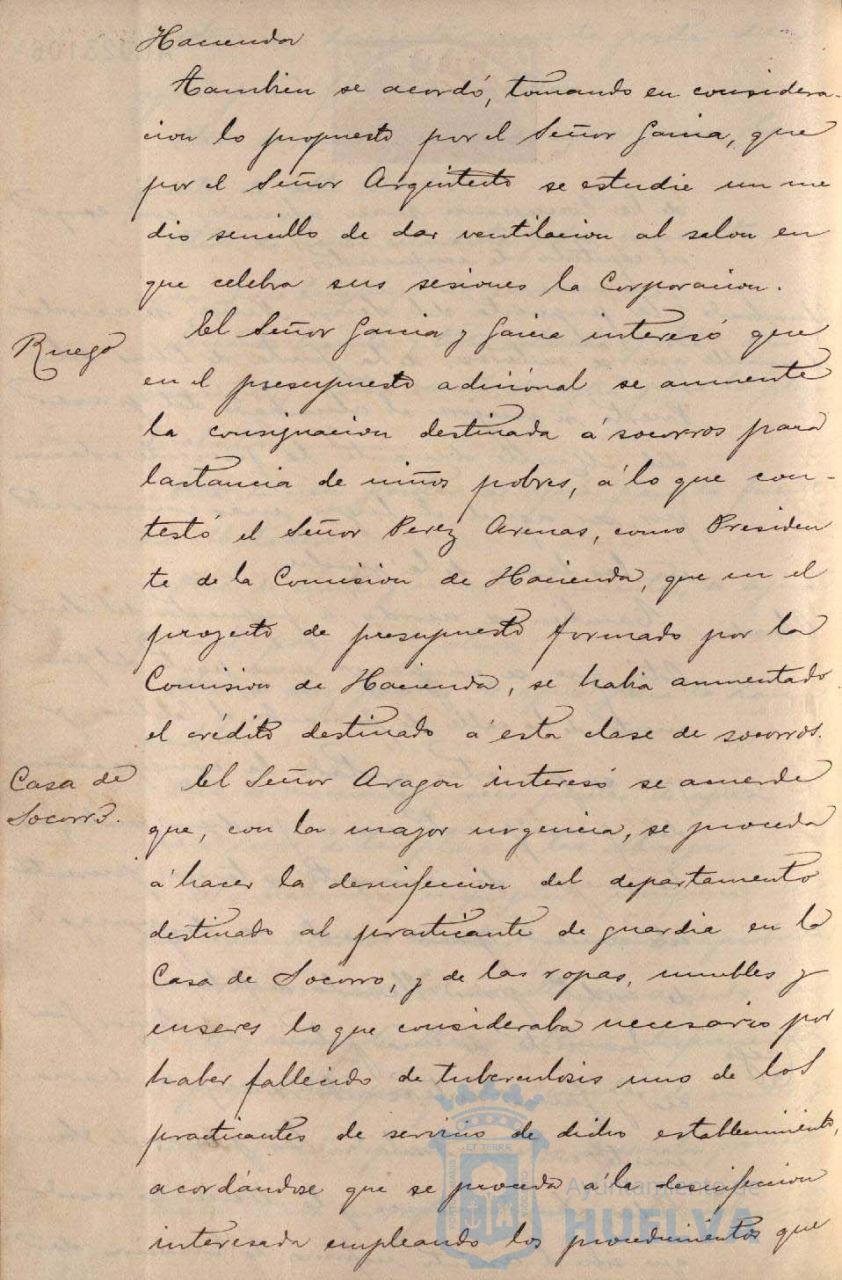 Hacienda
Tambien se acordó, tomando en considera-
cion lo propuesto por el Señor Garcia, que
por el Señor Arquitecto se estudie un me
dio sencillo de dar ventilacion al salon en
que celebra sus sesiones la Corporacion.
Ruego
El Señor Garcia y Garcia interesó que
en el presupuesto adicional se aumente
la consignacion destinada á socorros para
lactancia de niños pobres, á lo que con-
testó el Señor Perez Arenas, como Presiden
te de la Comision de Hacienda, que en el
proyecto de presupuesto formado por la
Comision de Hacienda, se habia aumentado
el crédito destinado á esta clase de socorros.
Casa de
Socorro.
El Señor Aragon interesó se acuerde
que, con la mayor urgencia, se proceda
á hacer la desinfeccion del departamento
destinado al practicante de guardia en la
Casa de Socorro, y de las ropas, muebles y
enseres lo que consideraba necesario por
haber fallecido de tuberculosis uno de los
practicantes de servicio de dicho establecimiento,
acordándose que se proceda á la desinfeccion
interesada empleando los procedimientos que
Ayuntamiento de
HUELVA